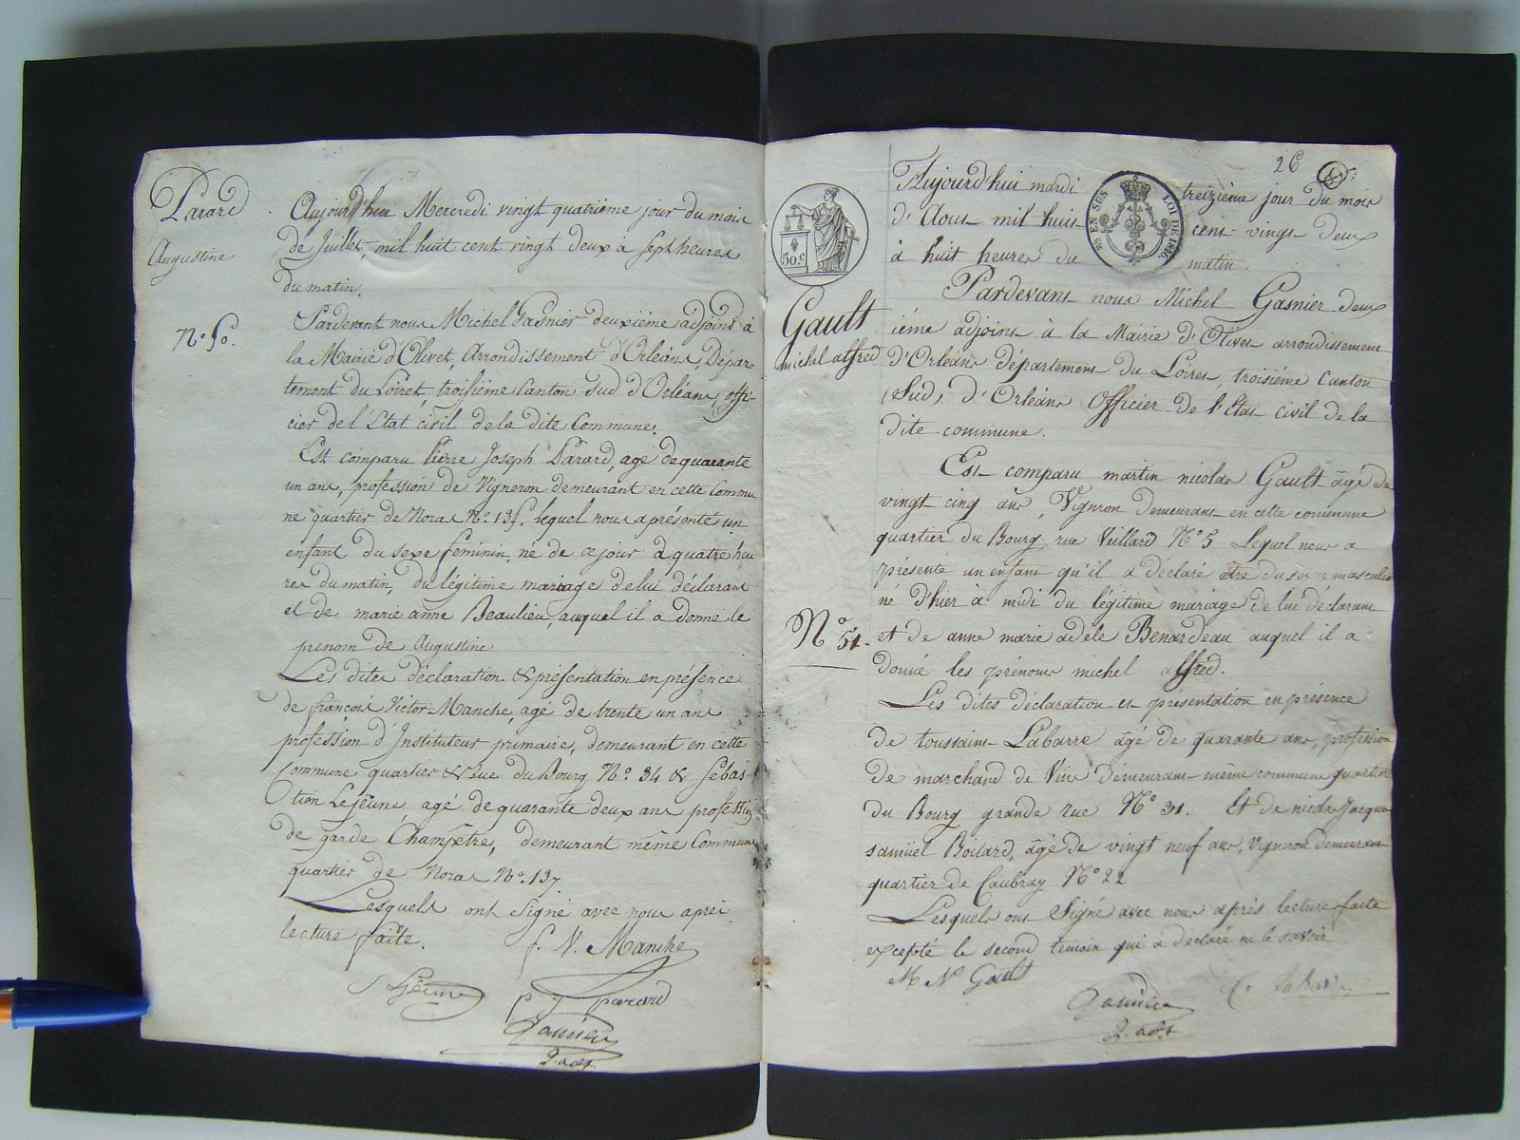 Parard
Augustine
N.º 50.
Aujourd'hui Mercredi vingt quatrième jour du mois
de Juillet, mil huit cent vingt deux à sept heures
du matin.
Pardevant nous Michel Gasnier deuxième adjoint à
la Mairie d'Olivet, arrondissement d'Orléans, Dépar-
tement du Loiret, troisième Canton Sud d'Orléans, offi-
cier de l'Etat civil de la dite Commune.
Est comparu Pierre Joseph Parard, agé de quarante
un ans, profession de Vigneron demeurant en cette Commu
ne quartier de Noras Nº. 135. lequel nous a présenté un
enfant du sexe féminin, né de ce jour à quatre heu
res du matin, du légitime mariage de lui déclarant
et de marie anne Beaulieu, auquel il a donné le
prenom de Augustine
Les dites déclaration & présentation en présence
de françois Victor Manche, agé de trente un ans
profession d'Instituteur primaire, demeurant en cette
Commune quartier & rue du Bourg Nº. 34 & Sebas-
tien Lejeune, agé de quarante deux ans profession
de garde Champêtre, demeurant même Commune
quartier de Noras Nº. 137
Lesquels ont signé avec nous après
lecture faite.
f. V. Manche
S Lejeune
P J parard
Gasnier
2. adjt
26
50.c
EN SUS
LOI DE 1816
Gault
michel alfred
Nº 51.
Aujourd'hui mardi treizième jour du mois
d'Aout mil huit cent vingt deux
à huit heures du matin.
Pardevant nous Michel Gasnier deux
ième adjoint à la Mairie d'Olivet arrondissement
d'Orléans département du Loiret, troisième Canton
(Sud) d'Orléans Officier de l'Etat civil de la
dite commune.
Est comparu martin nicolas Gault âgé de
vingt cinq ans, Vigneron demeurant en cette commune
quartier du Bourg, rue Veillard Nº 5 Lequel nous a
présenté un enfant qu'il a déclaré être du sexe masculin
né d'hier à midi du légitime mariage de lui déclarant
et de anne marie adèle Benardeau auquel il a
donné les prénoms michel alfred.
Les dites déclaration et présentation en présence
de toussaint Labarre âgé de quarante ans, profession
de marchand de Vin demeurant même commune quartier
du Bourg grande rue Nº 31. Et de nicolas Jacques
samuel Boilard, âgé de vingt neuf ans, Vigneron demeurant
quartier de Caubray Nº 22
Lesquels ont Signé avec nous après lecture faite
excepté le second temoin qui a déclaré ne le savoir
M N Gault
Gasnier
2. adjt